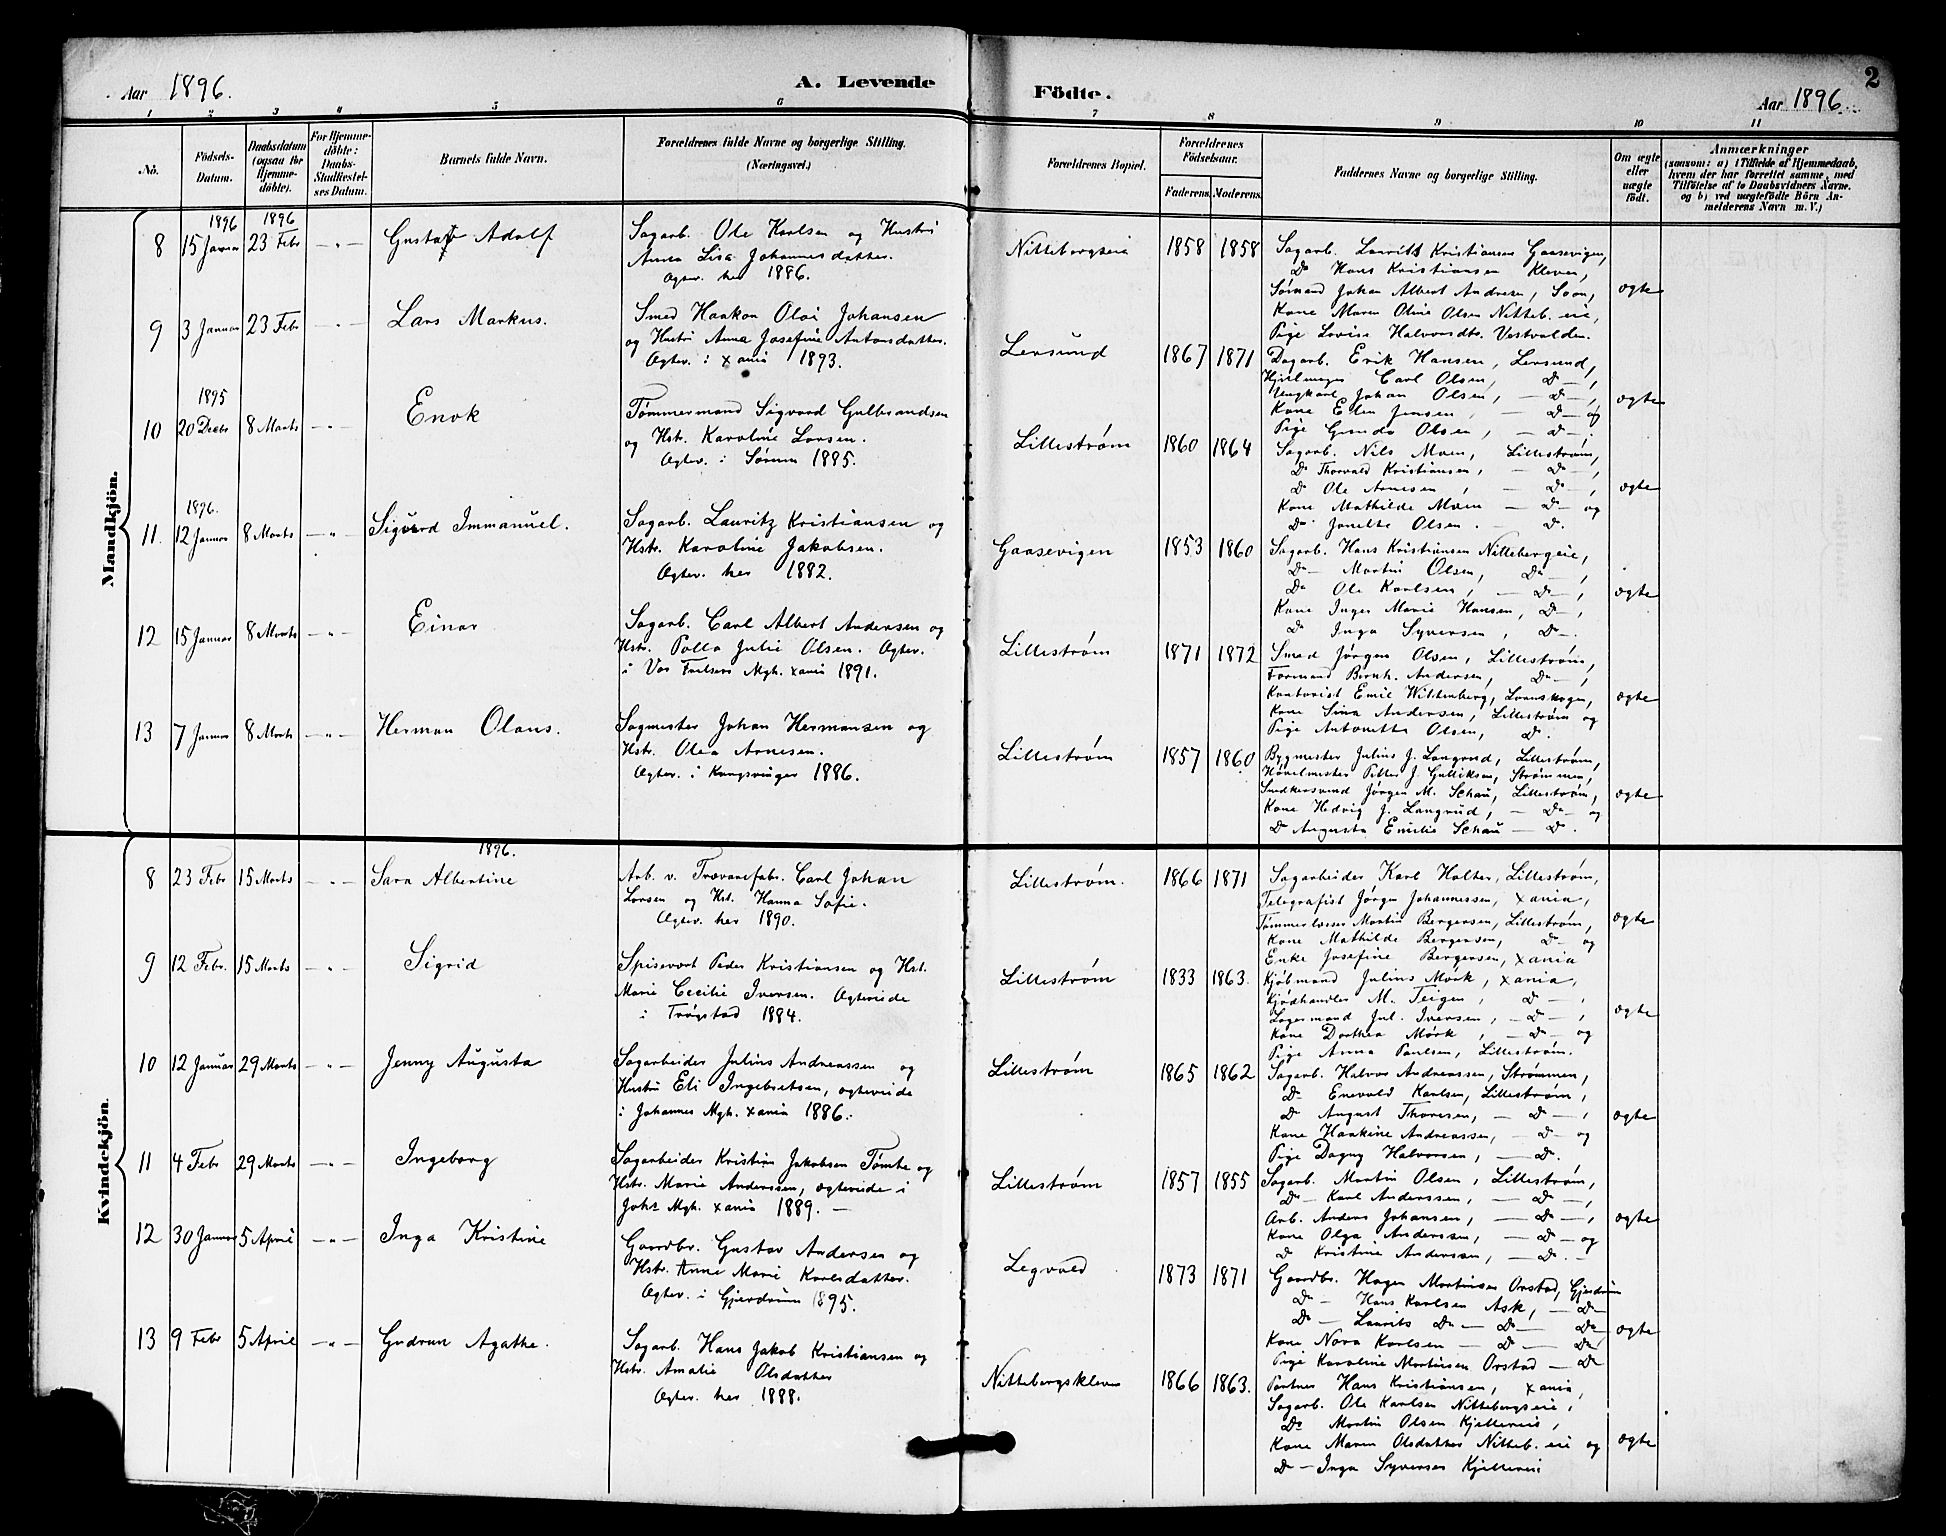 Aar 1896.
A. Levende
Födte.
2
Aar 1896.
1 2 3 4 5 6 7 8 9 10 11
No.
Födsels-
Datum.
Daabsdatum
(ogsaa for
Hjemme-
döbte).
For Hjemme-
döbte:
Daabs-
Stadfæstel-
ses Datum.
Barnets fulde Navn.
Forældrenes fulde Navne og borgerlige Stilling.
(Næringsvei.)
Forældrenes Bopæl.
Forældrenes
Födselsaar.
Faderens.
Moderens.
Faddernes Navne og borgerlige Stilling.
Om ægte
eller
uægte
födt.
Anmærkninger
(saasom: a) i Tilfælde af Hjemmedaab,
hvem der har forrettet samme, med
Tilföielse af to Daabsvidners Navne.
og b) ved uægtefödte Börn An-
melderens Navn m. V.)
Mandkjön.
1896 1896
8 15 Januar 23 Febr — " — Gustaf Adolf
Sagarb. Ole Karlsen og Hustru
Anna Lisa Johannesdatter.
Ægtev. her 1886.
Nittebergseie 1858 1858
Sagarb. Lauritz Kristiansen Gaasevigen,
Do Hans Kristiansen Kleven,
Sømand Johan Albert Andresen, Soon,
Kone Maren Oline Olsen Nitteb. eie,
Pige Lovise Halvorsdtr. Vestvolden.
ægte
9 3 Januar 23 Febr — " — Lars Markus.
Smed Haakon Olai Johansen
og Hustru Anna Josefine Antonsdatter.
Ægtev. i Xania 1893.
Leersund 1867 1871
Dagarb. Erik Hansen, Leersund,
Carl Olsen, — Do —,
Ungkarl Johan Olsen, — Do —,
Kone Elen Jensen, — Do — og
Pige Gunda Olsen, — Do —.
ægte
1895
10 20 Decbr 8 Marts — " — Enok
Tømmermand Sigvard Gulbrandsen
og Hstr. Karoline Larsen.
Ægtev. i Sørum 1885.
Lillestrøm 1860 1864
Sagarb. Nils Moen, Lillestrøm,
Do Thorvald Kristiansen, — Do —,
Do Ole Arnesen, — Do —,
Kone Mathilde Moen — Do — og
Do Janette Olsen. — Do.
ægte
1896.
11. 12 Januar 8 Marts — " — Sigurd Immanuel.
Sagarb. Lauritz Kristiansen og
Hstr. Karoline Jakobsen.
Ægtev. her 1882.
Gaasevigen 1853 1860
Sagarb. Hans Kristiansen Nittebergeie,
Do — Martin Olsen, Do —,
Do Ole Karlsen, — Do —,
Kone Inger Marie Hansen, Do —,
Do Inga Syversen, Do —.
ægte
12 15 Januar 8 Marts — " — Einar
Sagarb. Carl Albert Andersen og
Hstr. Palla Julie Olsen. Ægtev.
i Vor Frelsers Mgh. Xania 1891.
Lillestrøm 1871 1872
Smed Jørgen Olsen, Lillestrøm,
Formand Bernh. Andersen, Do —,
Kontorist Emil Wittenberg, Lørenskogen,
Kone Sina Andersen, Lillestrøm og
Pige Antonette Olsen, Do.
ægte
13 7 Januar 8 Marts — " — Herman Olaus.
Sagmester Johan Hermansen og
Hstr. Olea Arnesen.
Ægtev. i Kongsvinger 1886.
Lillestrøm 1857 1860
Bygmester Julius J. Langrud, Lillestrøm,
Høvelmester Petter J. Gulliksen, Strømmen,
Snedkersvend Jørgen M. Schau, Lillestrøm,
Kone Hedvig J. Langrud, — Do — og
Do Augusta Emilie Schau — Do.
ægte
Kvindekjön.
1896.
8 23 Febr 15 Marts — " — Sara Albertine
Arb. v. Trævarefabr. Carl Johan
Larsen og Hst. Hanna Sofie.
Ægtev. her 1890.
Lillestrøm. 1866 1871
Sagarbeider Karl Holter, Lillestrøm,
Telegrafist Jørgen Johannessen, Xania,
Martin Bergersen, Lillestrøm,
Kone Mathilde Bergersen, Do — og
Enke Josefine Bergersen, Xania
ægte
9 12 Febr. 15 Marts — " — Sigrid
Spisevært Peder Kristiansen og Hst.
Marie Cecilie Iversen. Ægteviede
i Trøgstad 1884.
Lillestrøm 1833 1863.
Kjøbmand Julius Mørk, Xania,
Kjødhandler M. Teigen, Do —,
Lagermand Jul. Iversen, — Do —,
Kone Dorthea Mørk, — Do — og
Pige Anna Paulsen, Lillestrøm.
ægte
10 12 Januar 29 Marts — " — Jenny Augusta
Sagarbeider Julius Andreassen og
Hustru Eli Ingebretsen, ægteviede
i Johannes Mgh. Xania 1886.
Lillestrøm 1865 1862
Sagarb. Halvor Andreassen, Strømmen,
Do — Enevald Karlsen, Lillestrøm,
Do August Thoresen, — Do —,
Kone Haakine Andreassen, — Do — og
Pige Dagny Halvorsen, — Do.
ægte
11 4 Febr 29 Marts — " — Ingeborg
Sagarbeider Kristian Jakobsen Tømte og
Hstr. Marie Anderssen, ægteviede i
Johs Mgh. Xania 1889. —
Lillestrøm 1857 1855
Sagarb. Martin Olsen, Lillestrøm,
Do — Karl Anderssen, — Do —,
Arb. Anders Johansen, — Do —,
Kone Olga Anderssen, — Do — og
Do Kristine Anderssen, — Do. —
ægte
12 30 Januar 5 April — " — Inga Kristine
Gaardbr. Gustav Andersen og
Hstr. Anne Marie Karlsdatter.
Ægtev. i Gjerdrum 1895.
Legvold 1873 1871
Gaardbr. Hagen Martinsen Orstad, Gjerdrum
Do — Hans Karlsen Ask, — Do —
Do — Laurits Do — Do — Do
Kone Nora Karlsen — Do — Do
Pige Karoline Martinsen Orstad — Do
ægte
13 9 Febr 5 April — " — Gudrun Agathe.
Sagarb. Hans Jakob Kristiansen og
Hstr. Amalie Olsdatter
Ægtev. her 1888.
Nittebergskleven 1866 1863.
Portner Hans Kristiansen, Xania,
Sagarb. Ole Karlsen Nittebergseie,
Do Martin Olsen Kjellereie,
Kone Maren Olsdatter Nitteb. eie og
Do — Inga Syversen Kjellereie
ægte